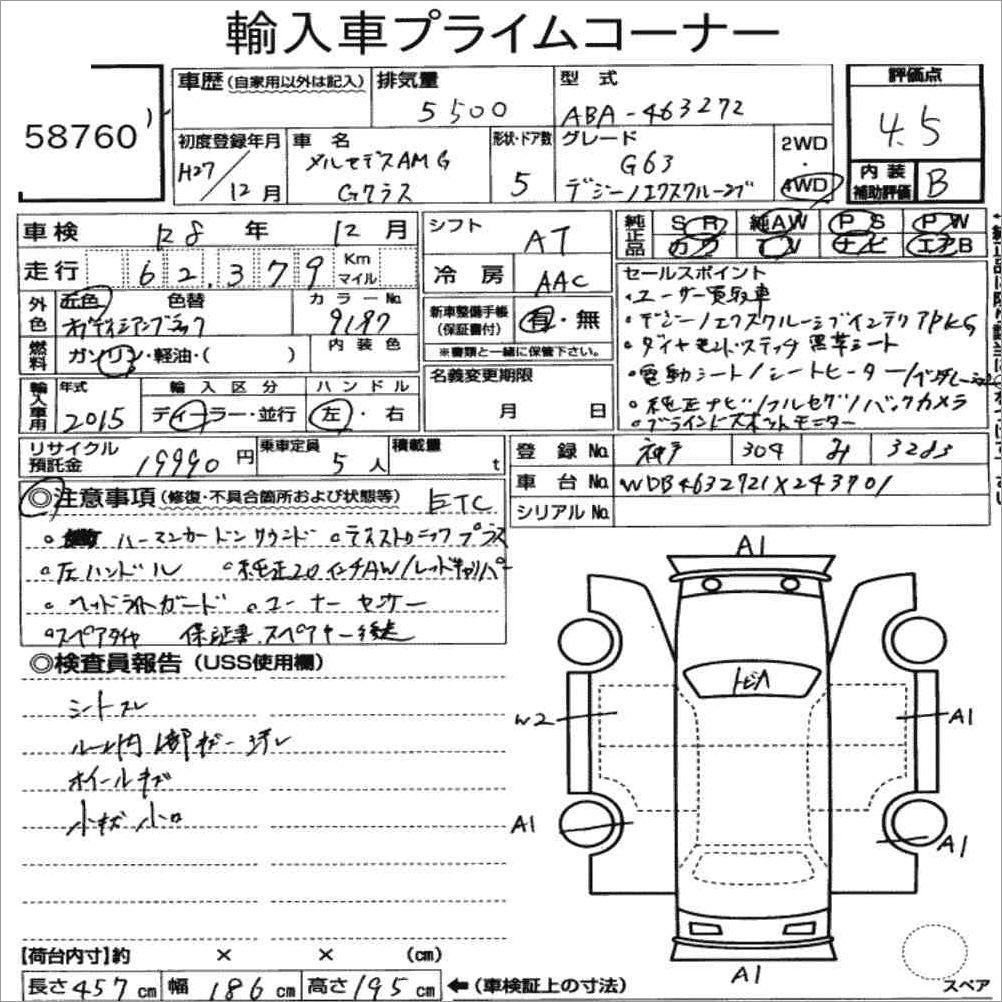 輸入車プライムコーナー
58760
車歴(自家用以外は記入)
排気量
5500
型式
ABA-463272
評価点
4.5
初度登録年月
H27/12月
車名
メルセデスAMG
Gクラス
形状・ドア数
5
グレード
G63
デジーノエクスクルーシブ
2WD
・
4WD
内装
補助評価
B
車検
28年 12月
走行
62,379
Km
マイル
外色
元色 色替
オブシディアンブラック
カラーNo.
9197
燃料
ガソリン・軽油・( )
内装色
輸入車用
年式
2015
輸入区分
ディーラー・並行
ハンドル
左・右
リサイクル預託金
19990円
乗車定員
5人
積載量
t
シフト
AT
冷房
AAC
新車整備手帳
(保証書付)
有・無
※書類と一緒に保管下さい。
名義変更期限
月 日
純正品
SR 純AW PS PW
カワ TV ナビ エアB
セールスポイント
・ユーザー買取車
・デジーノエクスクルーシブインテリアPKG
・ダイヤモンドステッチ黒革シート
・電動シート/シートヒーター/ベンチレーション
・純正ナビ/フルセグ/バックカメラ
・ブラインドスポットモニター
登録No.
神戸 304 み
車台No.
WDB4632721X243701
シリアルNo.
◎注意事項(修復・不具合箇所および状態等) ETC
・ハーマンカードンサウンド ・ディストロニックプラス
・左ハンドル ・純正20インチAW/レッドキャリパー
・ヘッドライトガード ・コーナーセンサー
・スペアタイヤ 保証書、スペアキー後送
◎検査員報告(USS使用欄)
シートスレ
ホイールキズ
小キズ 小凹
A1
トビA
W2
A1
A1
A1
A1
スペア
【荷台内寸】約 × × (cm)
長さ457cm 幅186cm 高さ195cm ←(車検証上の寸法)